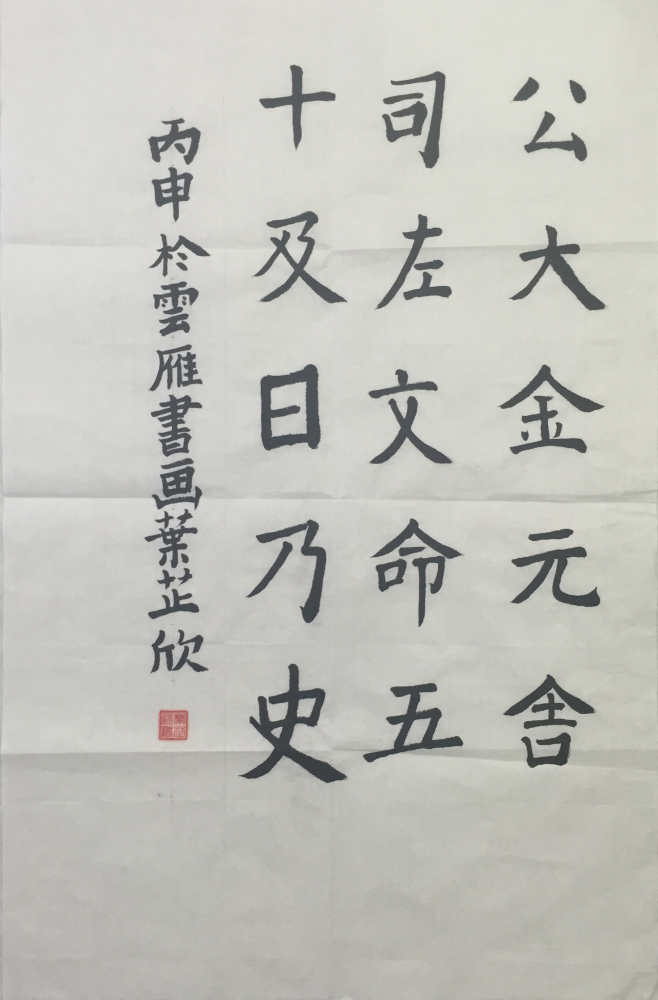 公大金元舍
司左文命五
十及日乃史
丙申於雲雁書画葉芷欣